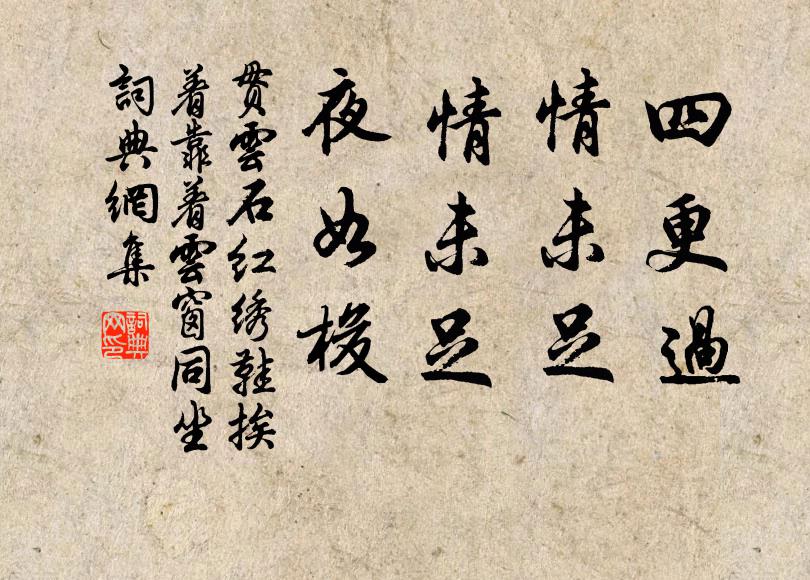 四更過
情未足
情未足
夜如梭
貫雲石红绣鞋挨
着靠着雲窗同坐
詞典網集
詞典
网印